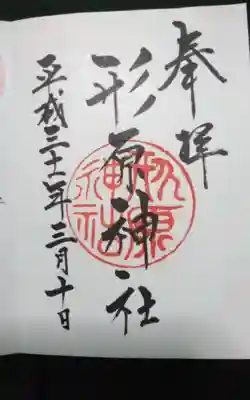 奉拝
形原神社
平成三十一年三月十日
形原神社